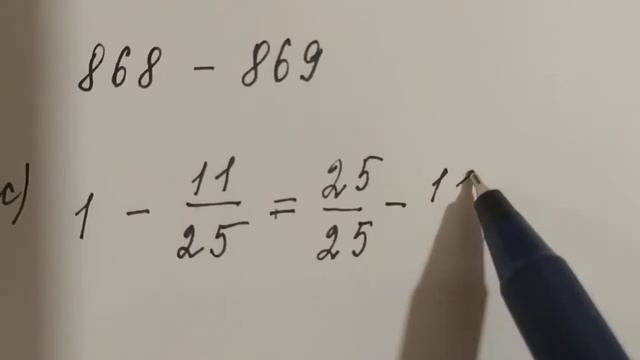 868 - 869
c) 1 - 11/25 = 25/25 - 11